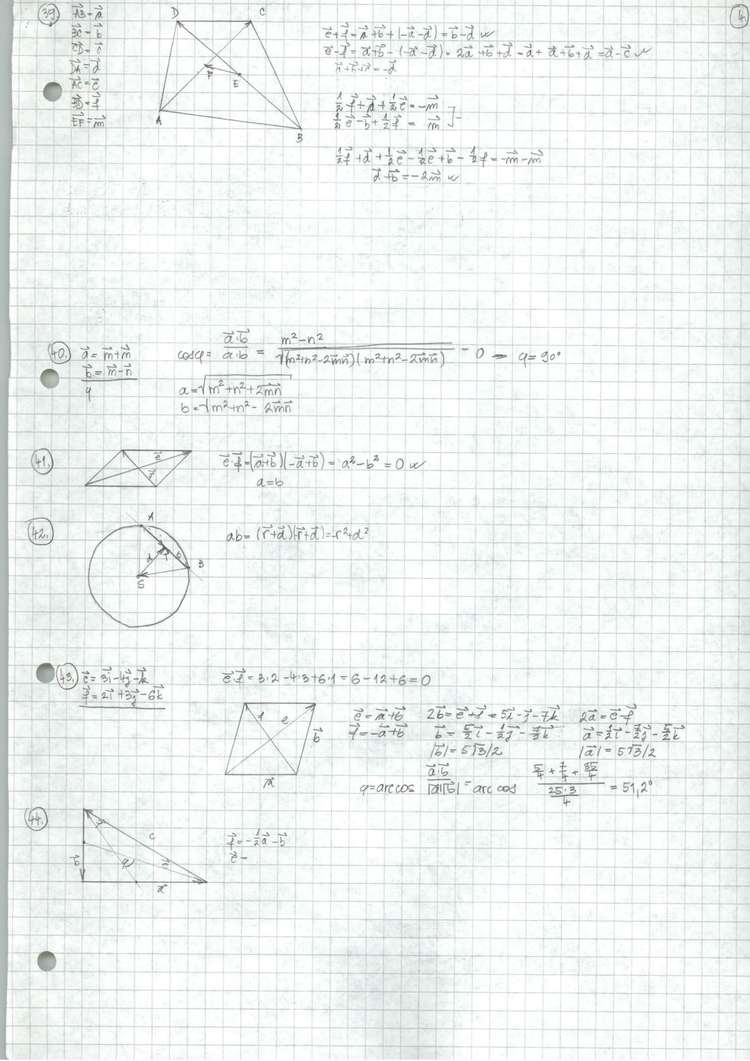 4.
39.
AB⃗ = a⃗
BC⃗ = b⃗
CD⃗ = c⃗
DA⃗ = d⃗
AC⃗ = e⃗
BD⃗ = f⃗
EF⃗ = m⃗
D C
F E
A B
e⃗+f⃗ = a⃗+b⃗+(-a⃗-d⃗) = b⃗-d⃗
e⃗-f⃗ = a⃗+b⃗-(-a⃗-d⃗) = 2a⃗+b⃗+d⃗ = a⃗+a⃗+b⃗+d⃗ = a⃗-c⃗
= -d⃗
1/2 f⃗ + d⃗ + 1/2 e⃗ = -m⃗
1/2 e⃗ - b⃗ + 1/2 f⃗ = m⃗ ] -
1/2 f⃗ + d⃗ + 1/2 e⃗ - 1/2 e⃗ + b⃗ - 1/2 f⃗ = -m⃗ - m⃗
d⃗+b⃗ = -2m⃗
40.
a⃗ = m⃗+n⃗
b⃗ = m⃗-n⃗
φ
cosφ = a⃗·b⃗ / a·b = m²-n² / √((m²+n²-2m⃗n⃗)(m²+n²-2m⃗n⃗)) = 0 ⇒ φ = 90°
a = √(m²+n²+2m⃗n⃗)
b = √(m²+n²-2m⃗n⃗)
41.
e⃗
f⃗
e⃗·f⃗ = (a⃗+b⃗)(-a⃗+b⃗) = a²-b² = 0
a=b
42.
A
B
S
d
b
ab = (r⃗+d⃗)(r⃗+d⃗) = -r²+d²
43.
e⃗ = 3i⃗-4j⃗-k⃗
f⃗ = 2i⃗+3j⃗-6k⃗
e⃗·f⃗ = 3·2-4·3+6·1 = 6-12+6 = 0
f e
b⃗
a⃗
e⃗ = a⃗+b⃗ 2b⃗ = e⃗+f⃗ = 5i⃗-j⃗-7k⃗ 2a⃗ = e⃗-f⃗
f⃗ = -a⃗+b⃗ b⃗ = 5/2 i⃗ - 1/2 j⃗ - 7/2 k⃗ a⃗ = 1/2 i⃗ - 7/2 j⃗ - 5/2 k⃗
|b⃗| = 5√3/2 |a⃗| = 5√3/2
φ = arccos a⃗·b⃗ / |a⃗||b⃗| = arccos (5/4 + 7/4 + 35/4) / (25·3/4) = 51,2°
44.
c
φ
e⃗
b⃗
a⃗
f⃗ = -1/2 a⃗ - b⃗
e⃗ =